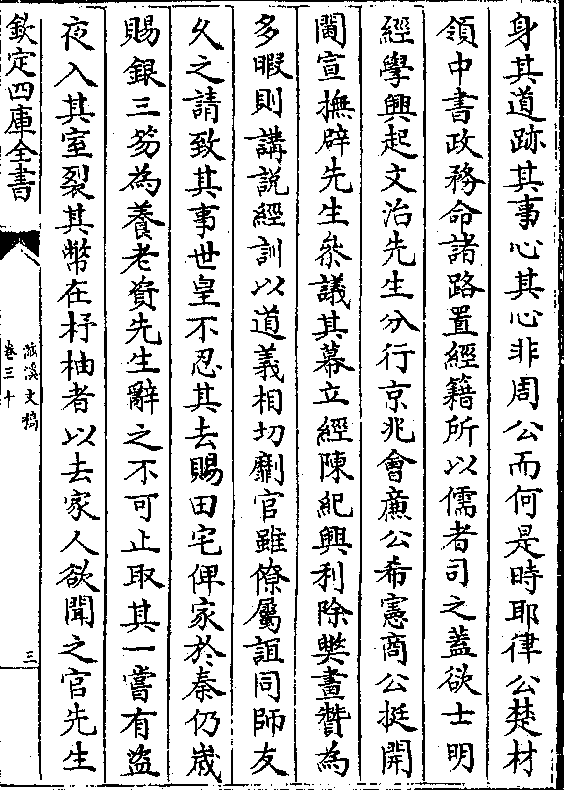 身其道跡其事心其心非周公而何是時耶律公楚材
領中書政務命諸路置經籍所以儒者司之蓋欲士明
經學興起文治先生分行京兆會廉公希憲商公挺開
閫宣撫辟先生叅議其幕立經陳紀興利除獘畫贊為
多暇則講說經訓以道義相切劘官雖僚屬誼同師友
久之請致其事世皇不忍其去賜田宅俾家於秦仍嵗
賜銀三笏為養老資先生辭之不可止取其一嘗有盜
夜入其室裂其幣在杼柚者以去家人欲聞之官先生
欽定四庫全書
滋溪文稿
卷三十
三